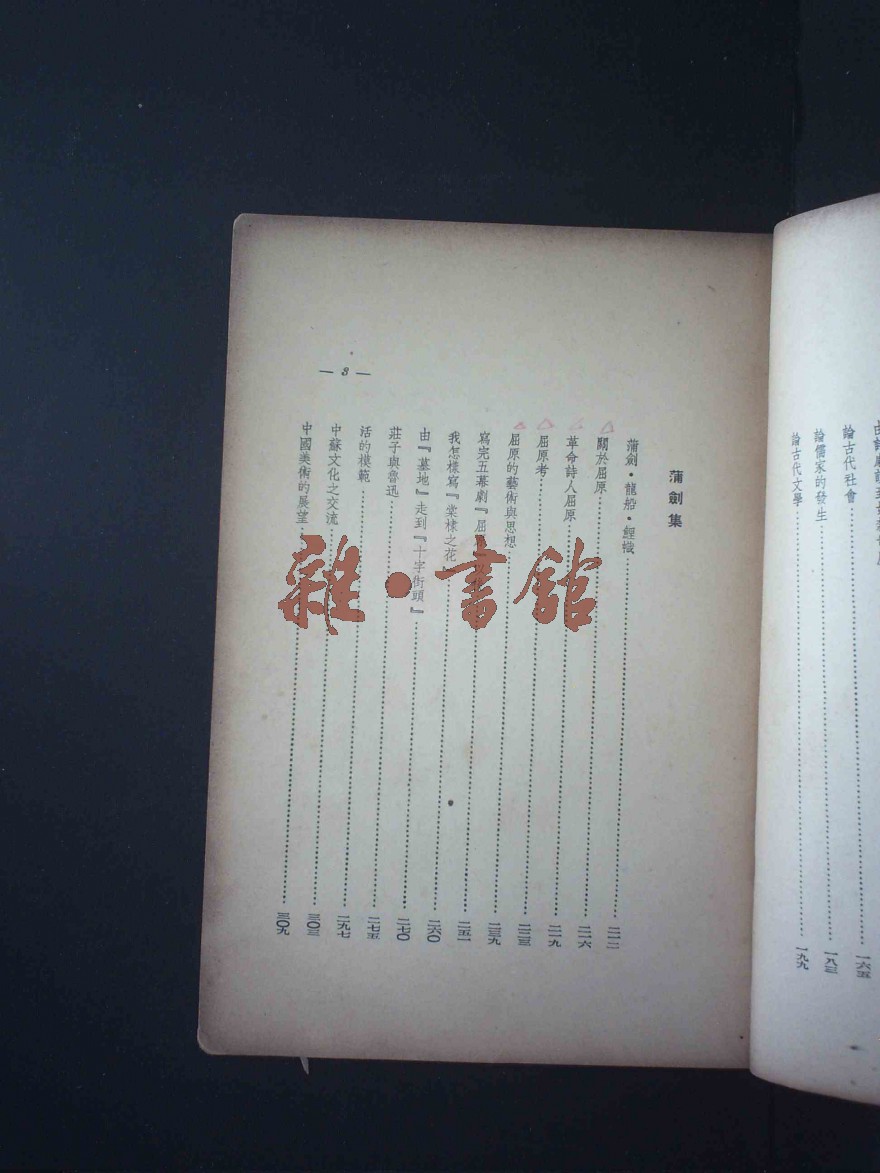 論古代社會……一六五
論儒家的發生……一八三
論古代文學……一九九
蒲劍集
蒲劍・龍船・鯉幟……二一二
關於屈原……二一六
革命詩人屈原……二一九
屈原考……二二三
屈原的藝術與思想……二三九
寫完五幕劇『屈……二五一
我怎樣寫『棠棣之花』……二六〇
由『墓地』走到『十字街頭』……二七〇
莊子與魯迅……二七五
活的模範……二九七
中蘇文化之交流……三〇三
中國美術的展望……三〇九
— 3 —
雜・書館